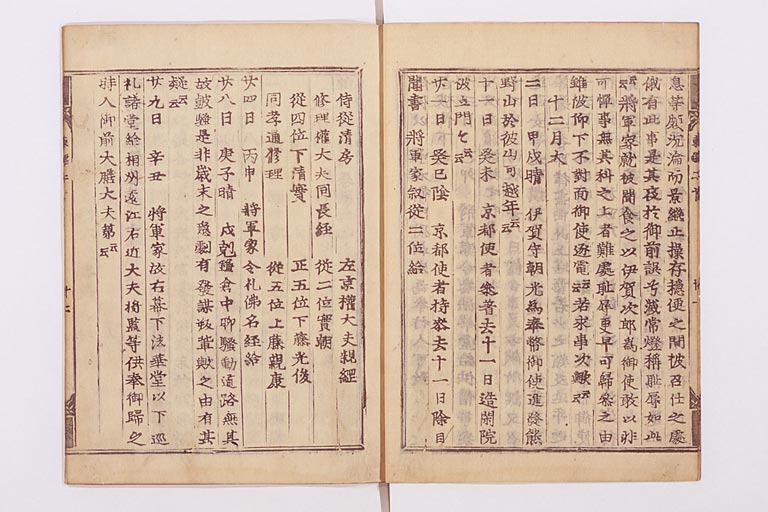 息等頗沉淪而景綱止操存穩便之間被召仕之處
俄有此事是其夜於御前誤弓滅常燈稱耻辱如此
云云將軍家就被聞食之以伊賀次郎爲御使敢以非
可憚事無其科之上者難處耻辱更早可歸參之由
雖被仰下不對面御使逐電云云若求事次歟云云
十二月大
二日甲戌晴 伊賀守朝光爲奉幣御使進發熊
野山於彼山可越年云云
十一日癸未 京都使者參著去十一日造閑院
汲立門々云云
廿一日癸巳陰 京都使者持參去十一日除目
聞書 將軍家敍從二位給
侍從清房 左京權大夫親經
修理權大夫同長經 從二位實朝
從四位下清實 正五位下藤光俊
同孝道修理 從五位上藤親康
廿四日 丙申 將軍家令礼佛名經給
廿八日 庚子晴 戌剋鎌倉中聊騷動道路無其
故鼓騷是非歳末之忩劇有發謀叛輩歟之由有其
疑云云
廿九日 辛丑 將軍家故右幕下法華堂以下巡
礼諸堂給相州遠江右近大夫將監等供奉御歸之
時入御前大膳大夫第云云